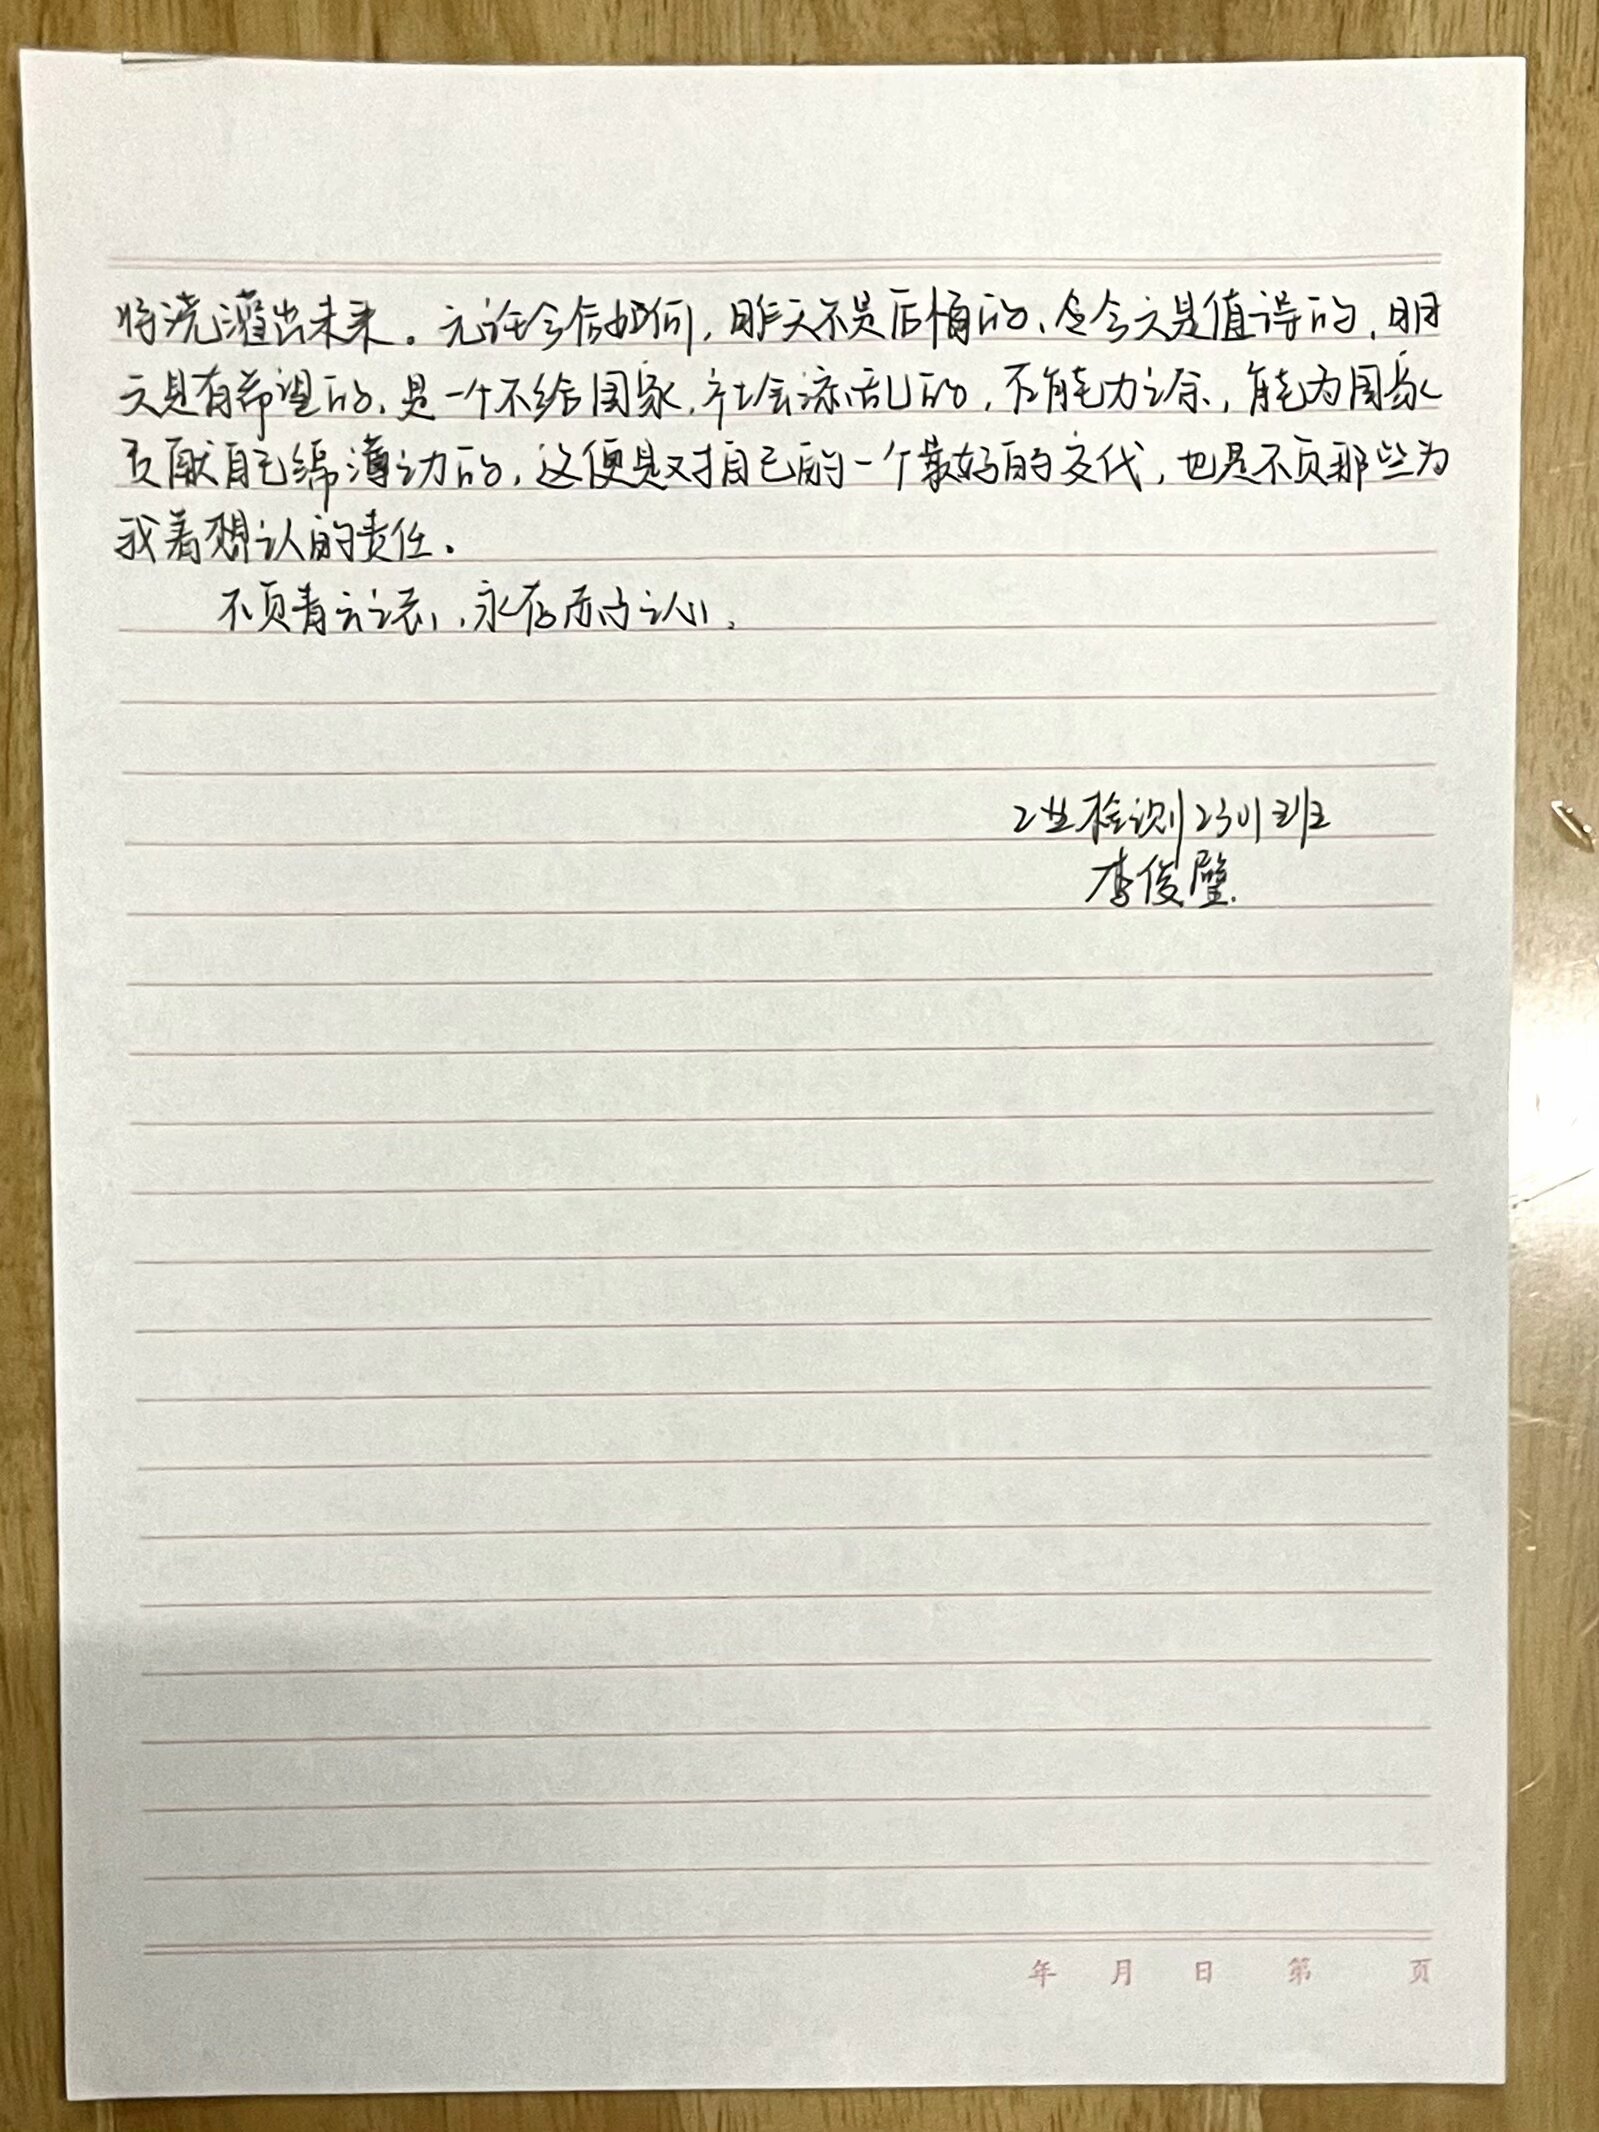 将浇灌出未来。无论今后如何，昨天不是后悔的、今天是值得的，明
天是有希望的，是一个不给国家，社会添乱的，在能力之余，能为国家
贡献自己绵薄之力的，这便是对自己的一个最好的交代，也是不负那些为
我着想之人的责任。
不负青云之志，永存历史之心。
工业检测2301班
李俊璧
年 月 日 第 页